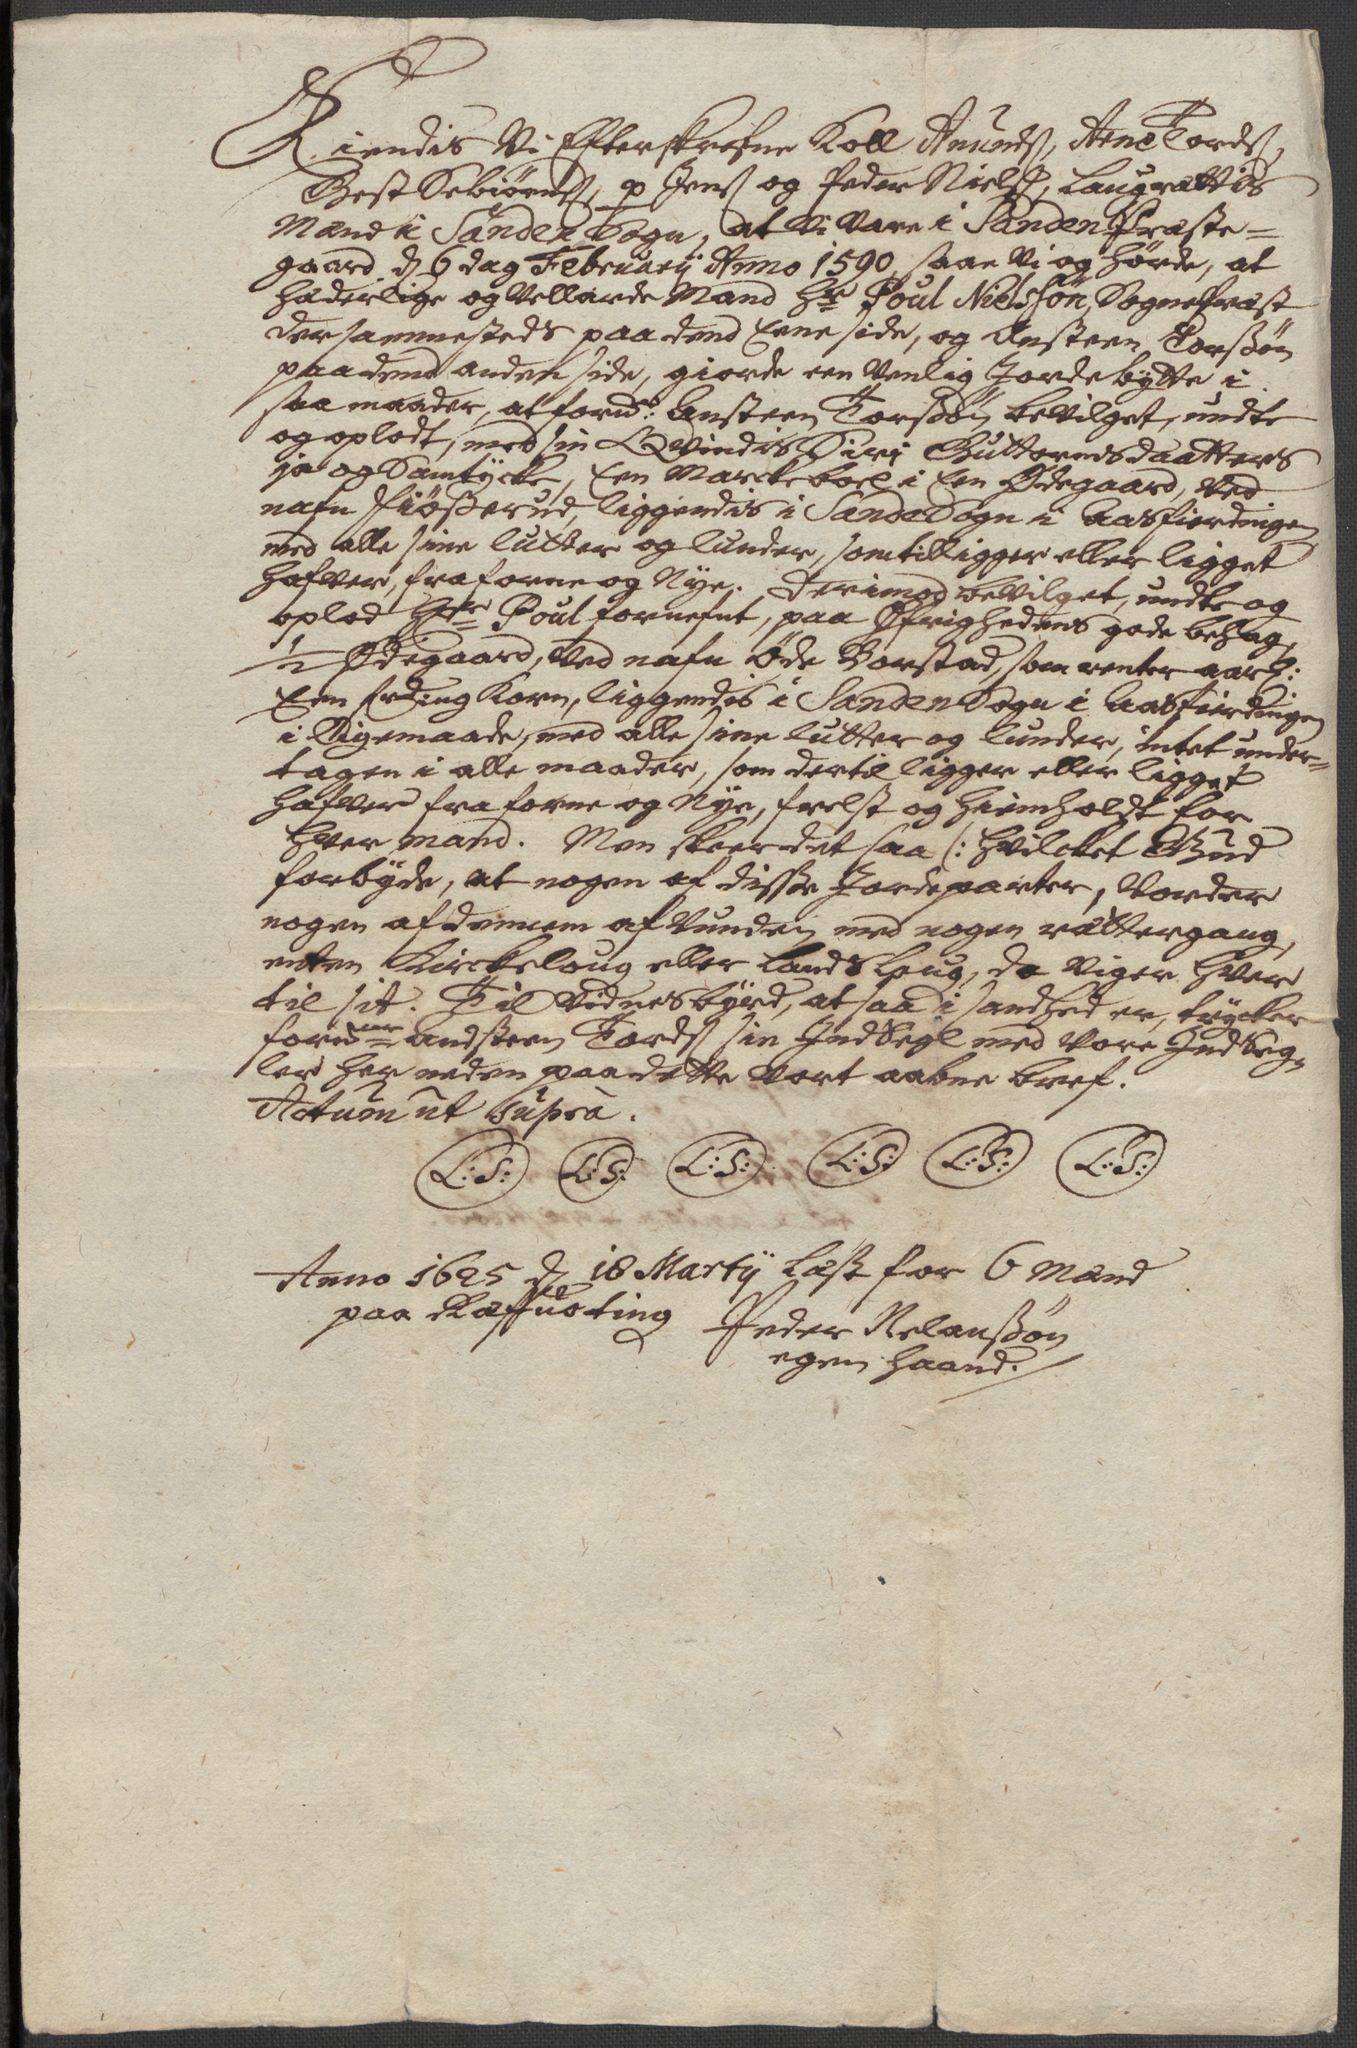 Kiendis Vi Efterskrefne Koll Anunds, Arne Tords,
Gest Sebiørns, p Jens og Peder Niels, Laugrættis
Mænd i Sanden Sogn, at Vi Vare i Sanden Præste=
gaard d 6 dag February Anno 1590, saae Vi og hørde, at
hæderlige og Vellærde Mand Hr Poul Nielssøn, Sognepræst
dersammesteds paa dend Eene side, og Ansteen Torssøn
paa dend anden side, giorde een Venlig Jordebytte i
saa maader, at forn: Ansteen Torssøn bevilget, undte
og oplodt, med sin Qvindis Siri Guttormsdaatters
ja og Samtycke, Een Marckeboel i Een Ødegaard, Ved
nafn Fiøsserud, liggendis i Sande Sogn i Aasfierdingen
med alle sine lutter og lunder, som tilligger eller ligget
hafver, fra forne og Nye. Derimod bevilget, undte og
oplod Hr Poul fornefnt, paa Øfrighedens gode behag,
1/2 Ødegaard, Ved nafn Øde Borstad, som renter aarl:
Een fierding Korn, liggendis i Sanden Sogn i Aasfierdingen
i Ligemaade, med alle sine lutter og lunder, intet under=
tagen i alle maader, som dertil ligger eller ligget
hafver fra forne og Nye, frelst og hiemholdt for
hver mand. Men skeer det saa /: hvilcket Gud
forbyde, at nogen af disse Jordeparter, Vorder
nogen af dennem afVunden med nogen rættergang,
enten Kirckeloug eller Landsloug, da Viger hver
til sit. Til Vidnesbyrd, at saa i sandhed er, trycker
forn Andsteen Tords sin Indsegl med Vore Indseg=
ler her neden paa dette Vort aabne bref.
Actum ut supra.
L:S: L:S: L:S: L:S: L:S: L:S:
Anno 1625 d 18 Marty læst for 6 Mænd
paa Ræffuoting
Peder Relanssøn
egen haand.